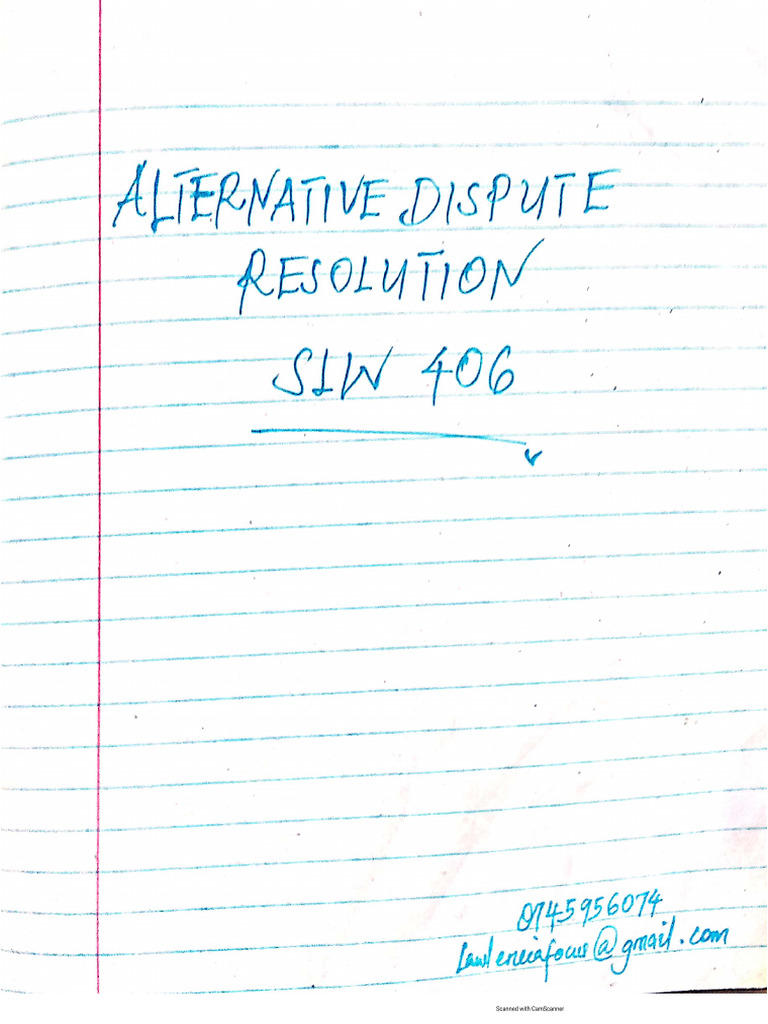 ALTERNATIVE DISPUTE
RESOLUTION
SLW 406
0745956074
@gmail.com
Scanned with CamScanner